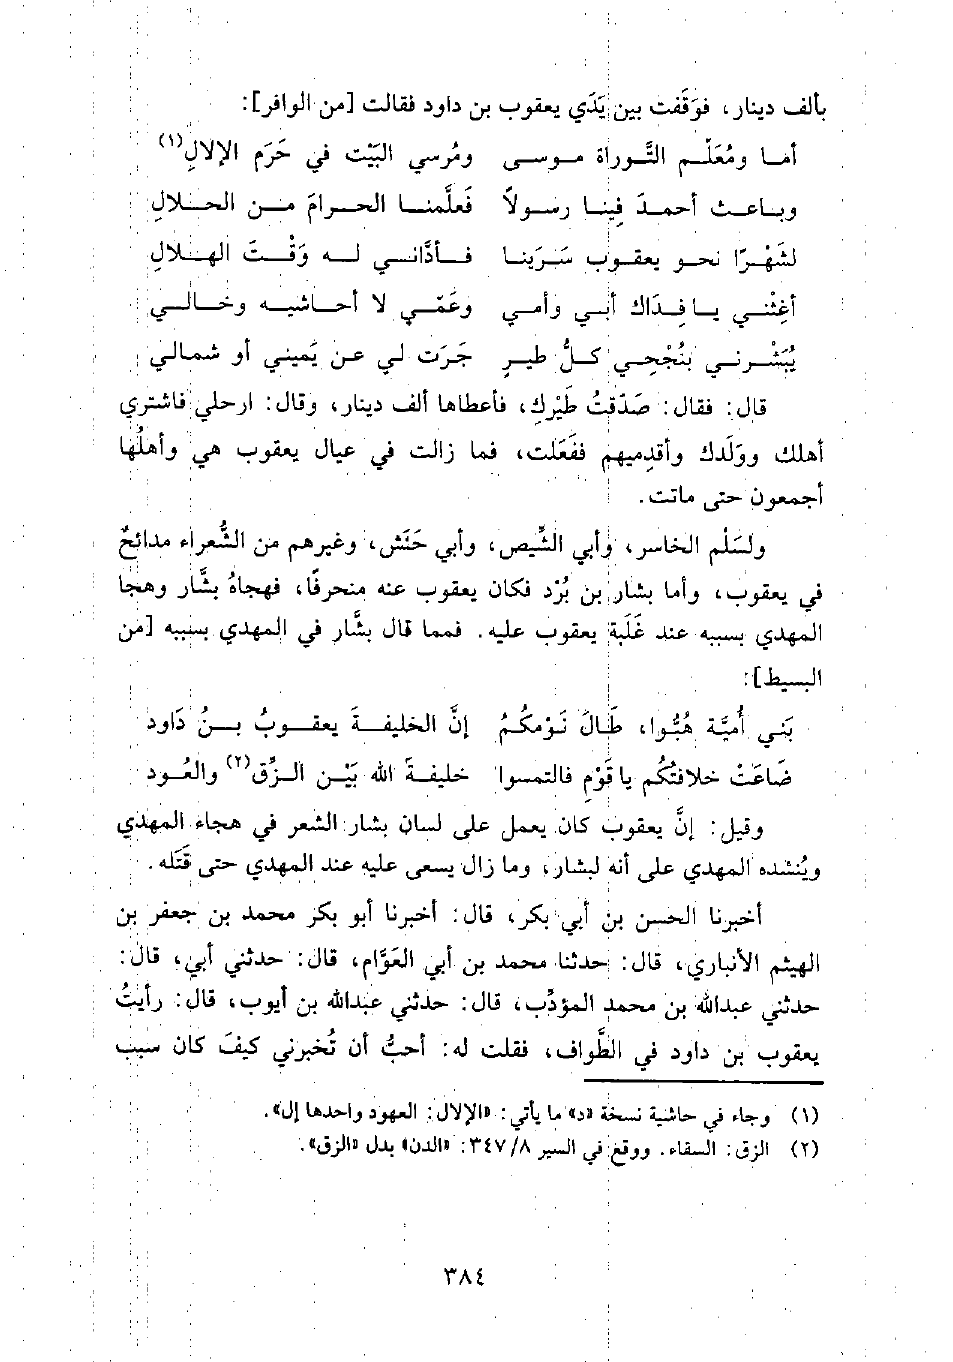 بألف دينار، فوَقَفت بين يَدَي يعقوب بن داود فقالت [من الوافر]:
أمـا ومُعَلِّـم التَّـوراة مـوسى ومُرسي البَيْت في حَرَم الإلالِ(١)
وبـاعـث أحمـدَ فِينـا رسـولاً فَعلَّمنـا الحـرامَ مـن الحـلالِ
لشَهْرًا نحـو يعقـوب سَرَينـا فـأدَّانـي لـه وَقْـتَ الهـلالِ
أغِثْنـي يـا فِـدَاك أبـي وأمـي وعَمّـي لا أحـاشيـه وخـالـي
يُبَشِّرنـي بنُجْحـي كـلُّ طيـرٍ جَرَت لي عن يَميني أو شمالي
قال: فقال: صَدَقتُ طَيْرك، فأعطاها ألف دينار، وقال: ارحلي فاشتري
أهلك وولَدك وأقدِميهم ففَعَلت، فما زالت في عيال يعقوب هي وأهلُها
أجمعون حتى ماتت.
ولسَلْم الخاسر، وأبي الشِّيص، وأبي حَنَش، وغيرهم من الشُّعراء مدائحٌ
في يعقوب، وأما بشار بن بُرْد فكان يعقوب عنه منحرفًا، فهجاهُ بشَّار وهجا
المهدي بسببه عند غَلَبة يعقوب عليه. فمما قال بشَّار في المهدي بسببه [من
البسيط]:
بَني أُميَّة هُبُّوا، طَالَ نَـوْمكُـمُ إنَّ الخليفـةَ يعقـوبُ بـنُ دَاود
ضَاعَتْ خلافتُكُم يا قَوْمِ فالتمسوا خليفـةَ الله بَيْـن الـزِّق(٢) والعُـود
وقيل: إنَّ يعقوب كان يعمل على لسان بشار الشعر في هجاء المهدي
ويُنشده المهدي على أنه لبشار، وما زال يسعى عليه عند المهدي حتى قَتَله.
أخبرنا الحسن بن أبي بكر، قال: أخبرنا أبو بكر محمد بن جعفر بن
الهيثم الأنباري، قال: حدثنا محمد بن أبي العَوَّام، قال: حدثني أبي، قال:
حدثني عبدالله بن محمد المؤدِّب، قال: حدثني عبدالله بن أيوب، قال: رأيتُ
يعقوب بن داود في الطَّواف، فقلت له: أحبُّ أن تُخبرني كيفَ كان سبب
(١) وجاء في حاشية نسخة «د» ما يأتي: «الإلال: العهود واحدها إل».
(٢) الزق: السقاء. ووقع في السير ٨/ ٣٤٧: «الدن» بدل «الزق».
٣٨٤